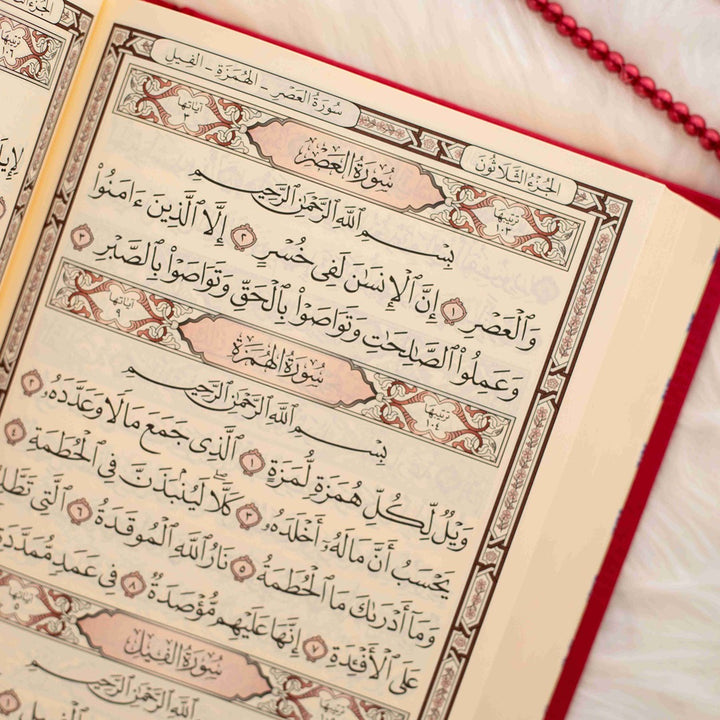 سُورَةُ العَصْرِ - الهُمَزَةِ - الفِيلِ
الجُزْءُ الثَّلَاثُونَ
ترتيبها ١٠٣ سُورَةُ العَصْرِ آياتها ٣
بِسْمِ ٱللَّهِ ٱلرَّحْمَٰنِ ٱلرَّحِيمِ
وَٱلْعَصْرِ ١ إِنَّ ٱلْإِنسَٰنَ لَفِى خُسْرٍ ٢ إِلَّا ٱلَّذِينَ ءَامَنُوا۟
وَعَمِلُوا۟ ٱلصَّٰلِحَٰتِ وَتَوَاصَوْا۟ بِٱلْحَقِّ وَتَوَاصَوْا۟ بِٱلصَّبْرِ ٣
ترتيبها ١٠٤ سُورَةُ الهُمَزَةِ آياتها ٩
بِسْمِ ٱللَّهِ ٱلرَّحْمَٰنِ ٱلرَّحِيمِ
وَيْلٌ لِّكُلِّ هُمَزَةٍ لُّمَزَةٍ ١ ٱلَّذِى جَمَعَ مَالًا وَعَدَّدَهُۥ ٢
يَحْسَبُ أَنَّ مَالَهُۥٓ أَخْلَدَهُۥ ٣ كَلَّا ۖ لَيُنۢبَذَنَّ فِى ٱلْحُطَمَةِ ٤
وَمَآ أَدْرَىٰكَ مَا ٱلْحُطَمَةُ ٥ نَارُ ٱللَّهِ ٱلْمُوقَدَةُ ٦ ٱلَّتِى
عَلَى ٱلْأَفْـِٔدَةِ ٧ إِنَّهَا عَلَيْهِم مُّؤْصَدَةٌ ٨ فِى عَمَدٍ
سُورَةُ الفِيلِ
بِسْمِ ٱللَّهِ ٱلرَّحْمَٰنِ ٱلرَّحِيمِ